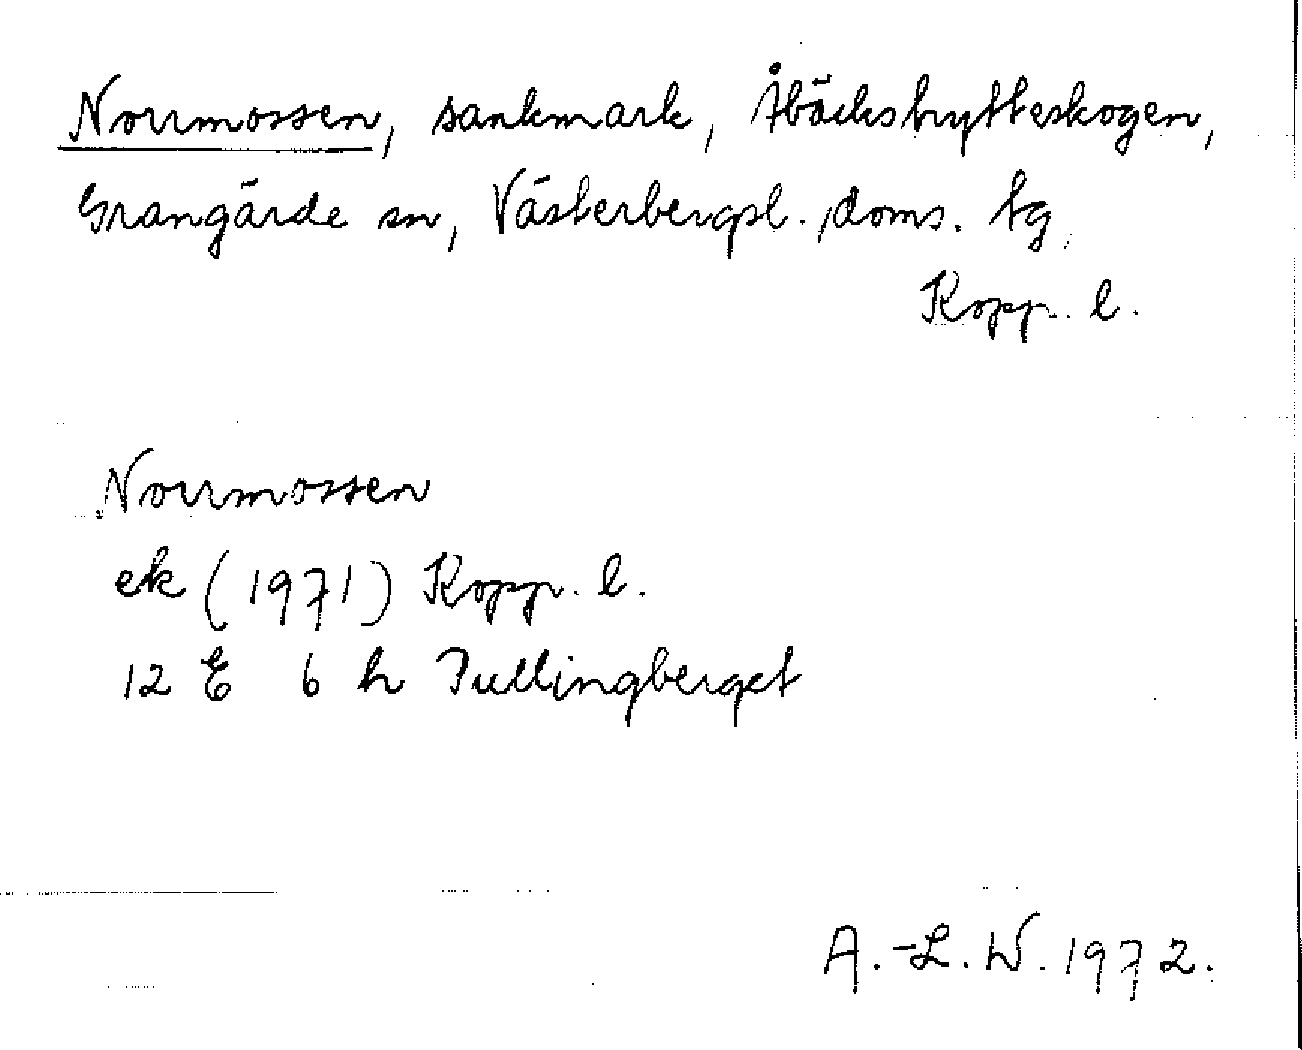 Norrmossen, sankmark, Åbäckshytteskogen,
Grangärde sn, Västerbergsl. doms. tg,
Kopp. l.
Norrmossen
ek (1971) Kopp. l.
12 E 6 h Tullingberget
A.-L. W. 1972.